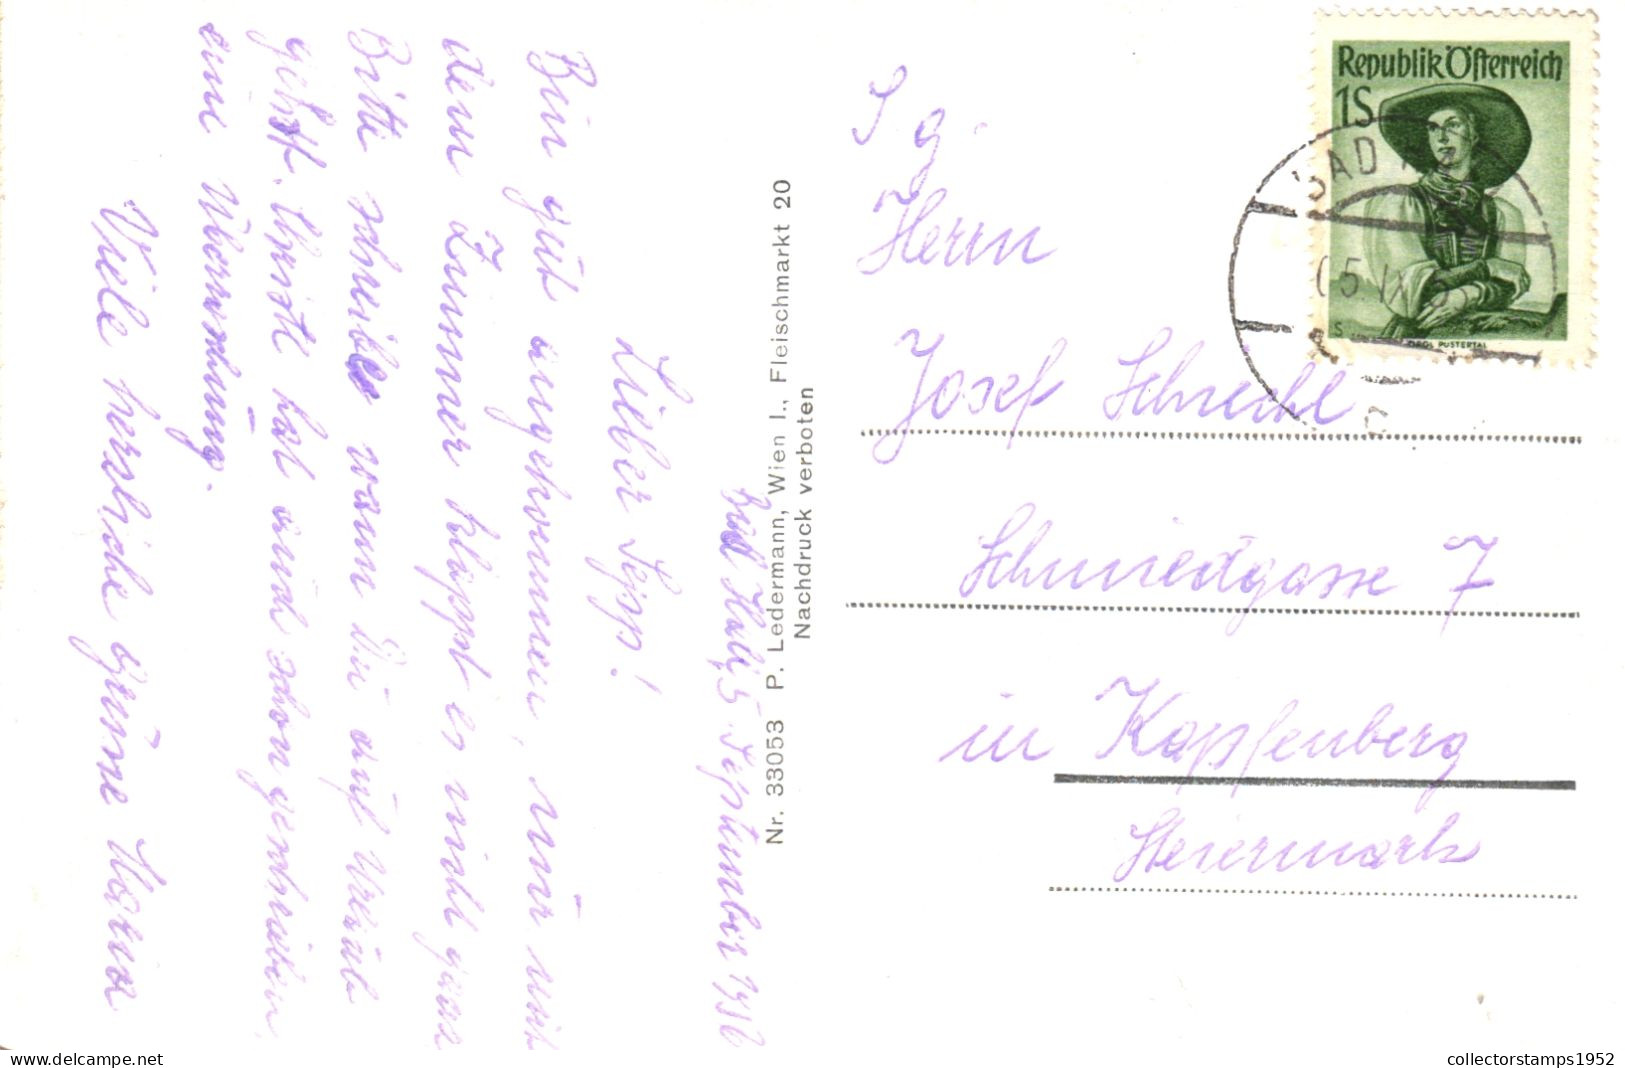 Bad Hall, 5. September 1956
Lieber Sepp!
Bin gut angekommen, nur mit
dem Zimmer klappt es nicht ganz
Bitte schreibe wann Du auf Urlaub
gehst. Christl hat auch schon geschrieben,
eine Überraschung.
Viele herzliche Grüsse
Nr. 33053 P. Ledermann, Wien I., Fleischmarkt 20
Nachdruck verboten
Republik Österreich
1S
TIROL PUSTERTAL
BAD
S g.
Herrn
Josef Schriebl
Schmiedgasse 7
in Kapfenberg
Steiermark
delcampe.net
collectorstamps1952